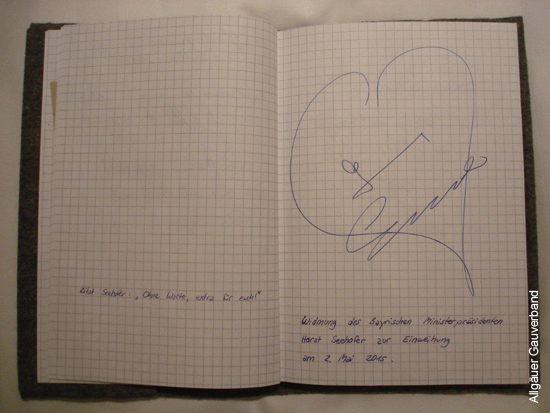 Zitat Seehofer: „Ohne Worte, extra für euch!"
Widmung des Bayrischen Ministerpräsidenten
Horst Seehofer zur Einweihung
am 2. Mai 2015.
Allgäuer Gauverband